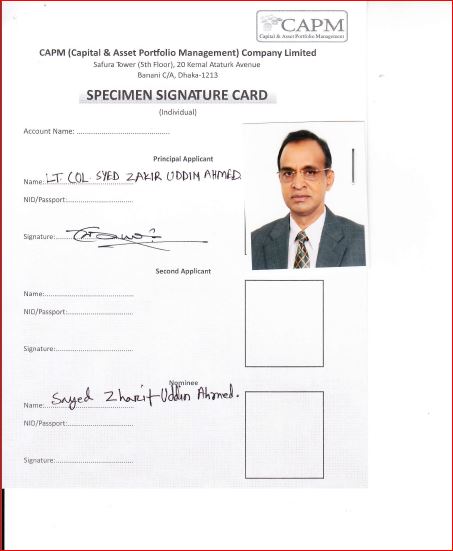 CAPM
Capital & Asset Portfolio Management
CAPM (Capital & Asset Portfolio Management) Company Limited
Safura Tower (5th Floor), 20 Kemal Ataturk Avenue
Banani C/A, Dhaka-1213
SPECIMEN SIGNATURE CARD
(Individual)
Account Name: ..........................................
Principal Applicant
Name: LT. COL. SYED ZAKIR UDDIN AHMED
NID/Passport:..............................
Signature:..................................
Second Applicant
Name:........................................
NID/Passport:..............................
Signature:...................................
Nominee
Name: Sayed Zharif Uddin Ahmed.
NID/Passport:..............................
Signature:...................................